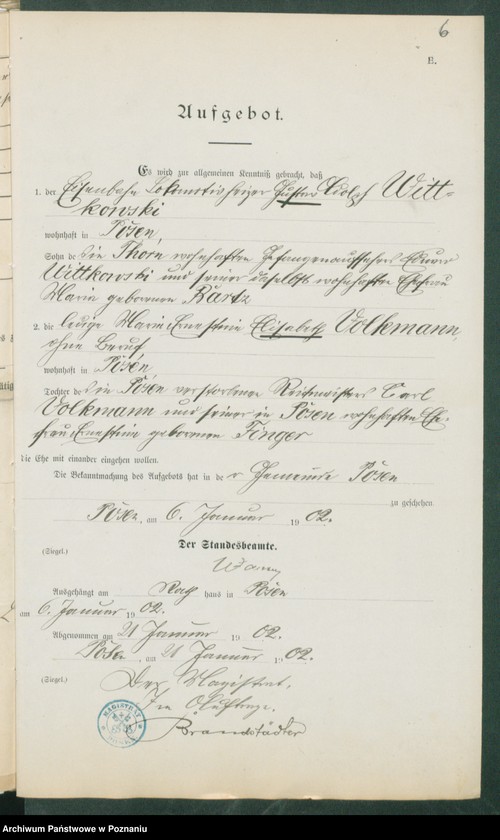 6
E.
Aufgebot.
Es wird zur allgemeinen Kenntniß gebracht, daß
1. der Eisenbahn Lokomotivheizer Gustav Adolf Witt-
kowski
wohnhaft in Posen,
Sohn des in Thorn wohnhaften Gefangenaufsehers Eduard
Wittkowski und seiner daselbst wohnhaften Ehefrau
Marie geborenen Bartz
2. die ledige Marie Ernestine Elisabeth Volkmann,
ohne Beruf
wohnhaft in Posen,
Tochter des in Posen verstorbenen Carl
Volkmann und seiner in Posen wohnhaften Ehe-
frau Ernestine geborenen Finger
die Ehe mit einander eingehen wollen.
Die Bekanntmachung des Aufgebots hat in der Gemeinde Posen
zu geschehen
Posen, am 6. Januar 1902.
Der Standesbeamte.
(Siegel.)
Ausgehängt am Rathhaus in Posen
am 6. Januar 1902.
Abgenommen am 21 Januar 1902.
Posen, am 21 Januar 1902.
(Siegel.) Der Magistrat.
Im Auftrage.
Brandstädter
MAGISTRAT
Archiwum Państwowe w Poznaniu